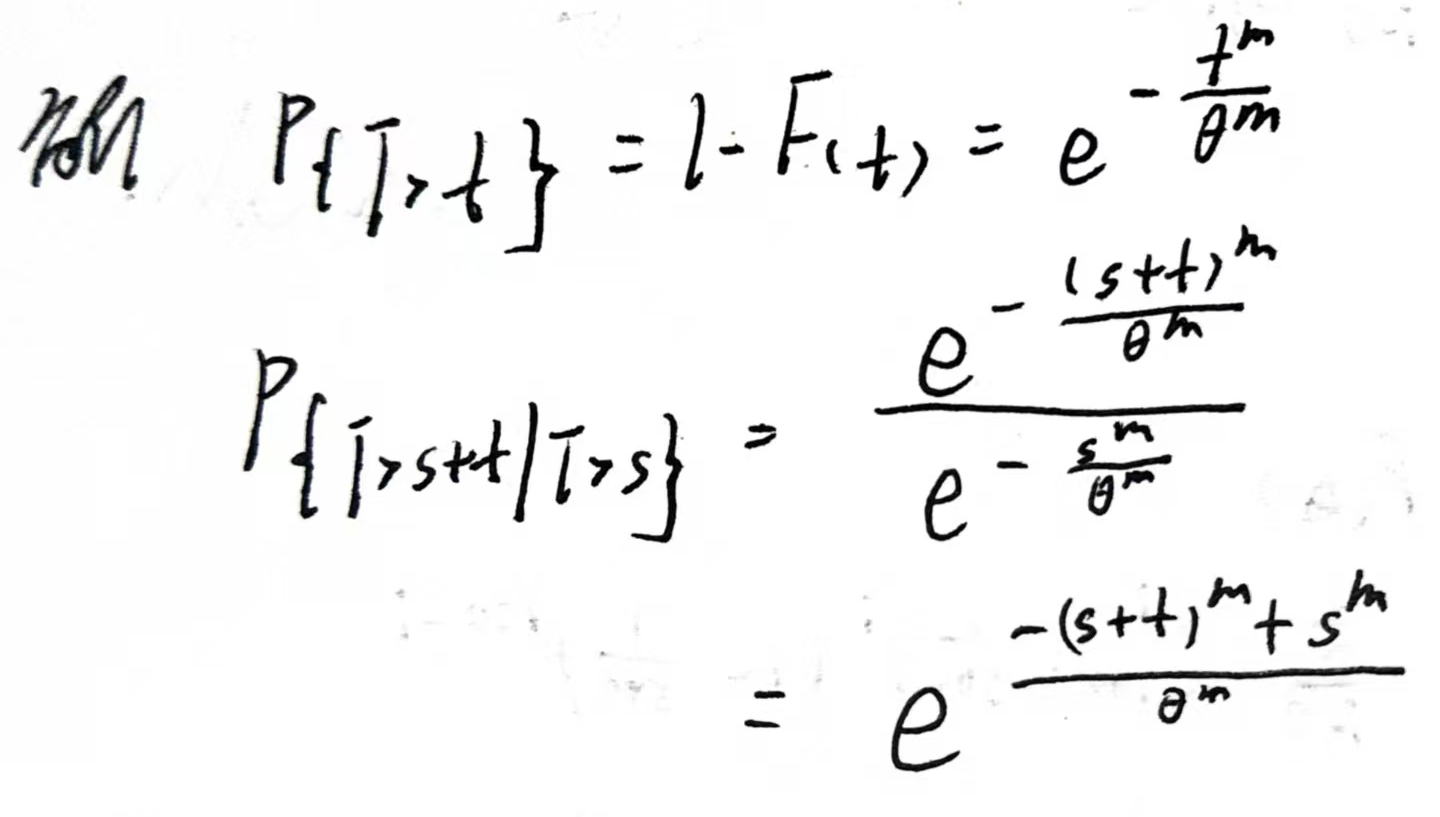 P{T>t} = 1 - F(t) = e^{-\frac{t^m}{θ^m}}
P{T>s+t|T>s} = \frac{e^{-\frac{(s+t)^m}{θ^m}}}{e^{-\frac{s^m}{θ^m}}}
= e^{\frac{-(s+t)^m+s^m}{θ^m}}